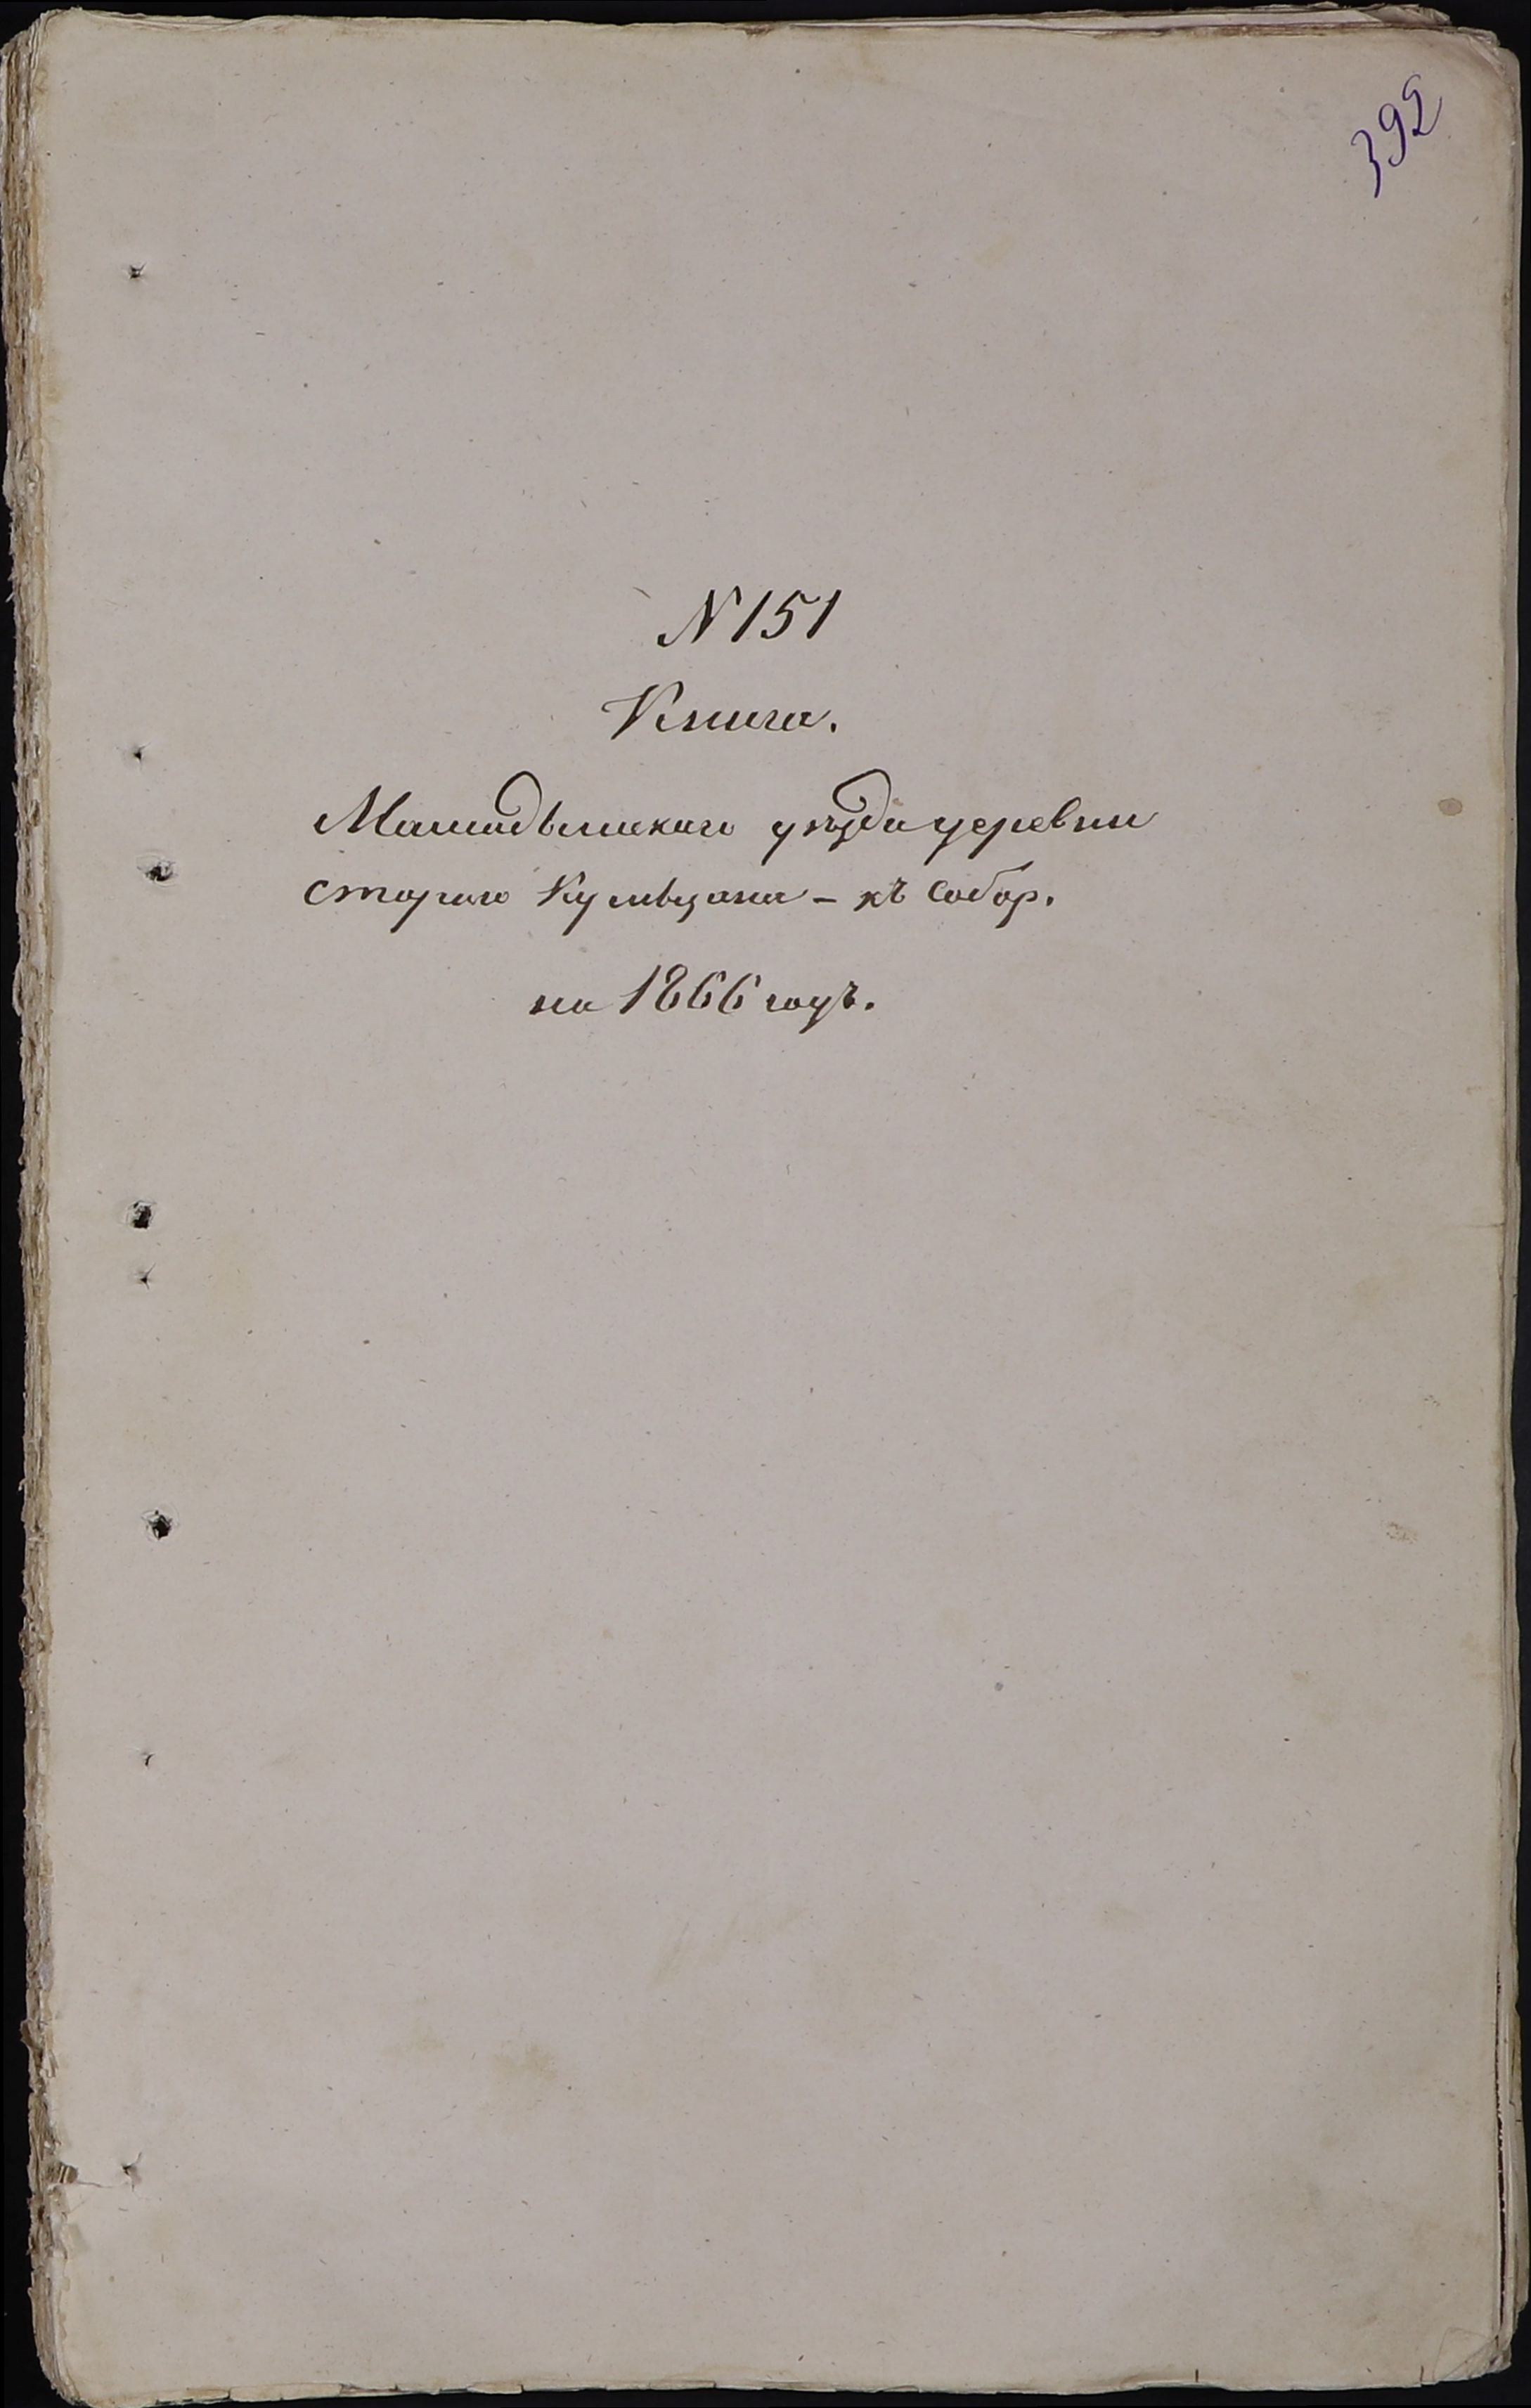 392
N 151
Книга.
Мамадышскаго уѣзда деревни
Стараго Кумязана - къ Собор.
на 1866 годъ.